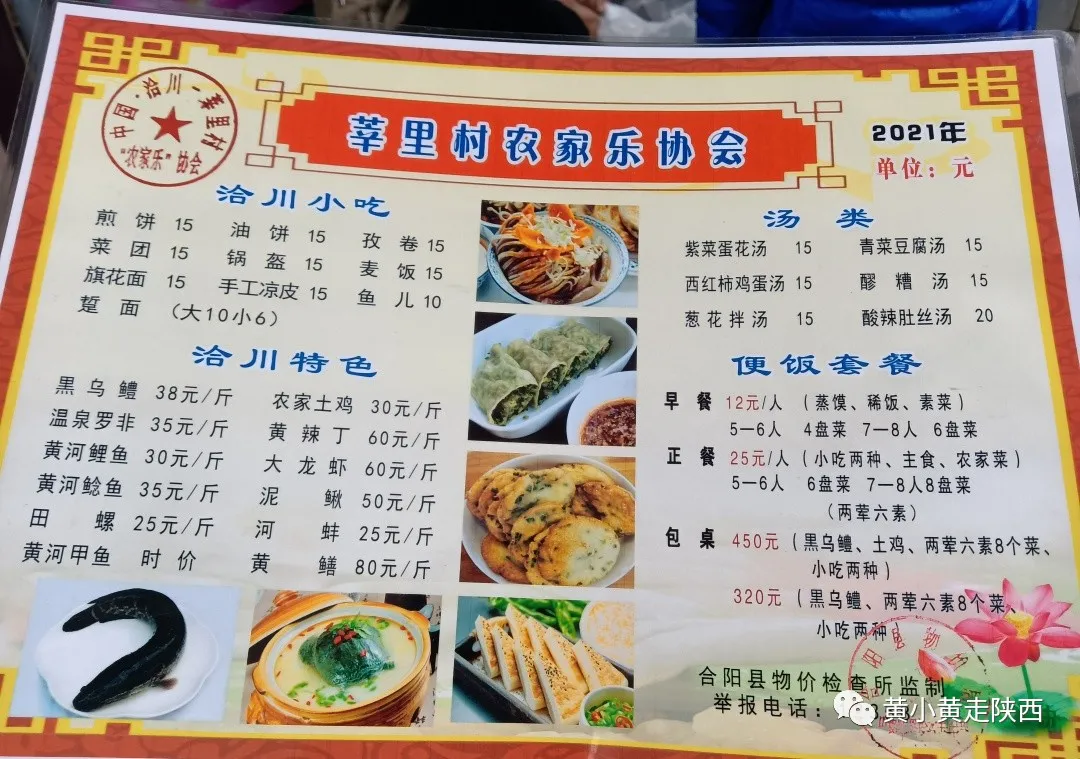 中国·洽川·莘里村
"农家乐"协会
莘里村农家乐协会
2021年
单位：元
洽川小吃
煎饼 15 油饼 15 孜卷 15
菜团 15 锅盔 15 麦饭 15
旗花面 15 手工凉皮 15 鱼儿 10
踅面 （大10小6）
洽川特色
黑乌鳢 38元/斤 农家土鸡 30元/斤
温泉罗非 35元/斤 黄辣丁 60元/斤
黄河鲤鱼 30元/斤 大龙虾 60元/斤
黄河鲶鱼 35元/斤 泥鳅 50元/斤
田螺 25元/斤 河蚌 25元/斤
黄河甲鱼 时价 黄鳝 80元/斤
汤类
紫菜蛋花汤 15 青菜豆腐汤 15
西红柿鸡蛋汤 15 醪糟汤 15
葱花拌汤 15 酸辣肚丝汤 20
便饭套餐
早餐 12元/人 （蒸馍、稀饭、素菜）
5—6人 4盘菜 7—8人 6盘菜
正餐 25元/人 （小吃两种、主食、农家菜）
5—6人 6盘菜 7—8人8盘菜
（两荤六素）
包桌 450元（黑乌鳢、土鸡、两荤六素8个菜、
小吃两种）
320元（黑乌鳢、两荤六素8个菜、
小吃两种）
合阳县物价检查所监制
举报电话：
黄小黄走陕西